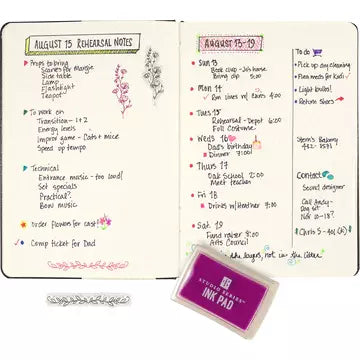 AUGUST 15 REHEARSAL NOTES
Props to bring
Scarves for Margie
Side table
Lamp
Flashlight
Teapot
To work on
Transition - 1+2
Energy levels
Improv game - Cats + mice
Speed up tempo
Technical
Entrance music - too loud!
Set specials
Practical?
Bow music
Order flowers for cast
Comp ticket for Dad
AUGUST 13-19
SUN 13
Book club - Jo's house
Bring dip 5:00
Mon 14
Run lines w/ 4:00
Tues 15
Rehearsal - Depot 6:00
Full Costume
Weds 16
Dad's birthday
Dinner 7:00!
Thurs 17
Oak School 2:00
Meet teacher
Fri 18
Drinks w/ Heather 9:00
Sat 19
Fund raiser 8:00
Arts Council
the lines, not in the
To do
Pick up dry cleaning
Plan meals for
Light bulbs!
Return shoes
Stern's Bakery
Contact
Sound designer
Call Andy
Dog sit
Nov 10-12?
Chris S
STUDIO SERIES
INK PAD